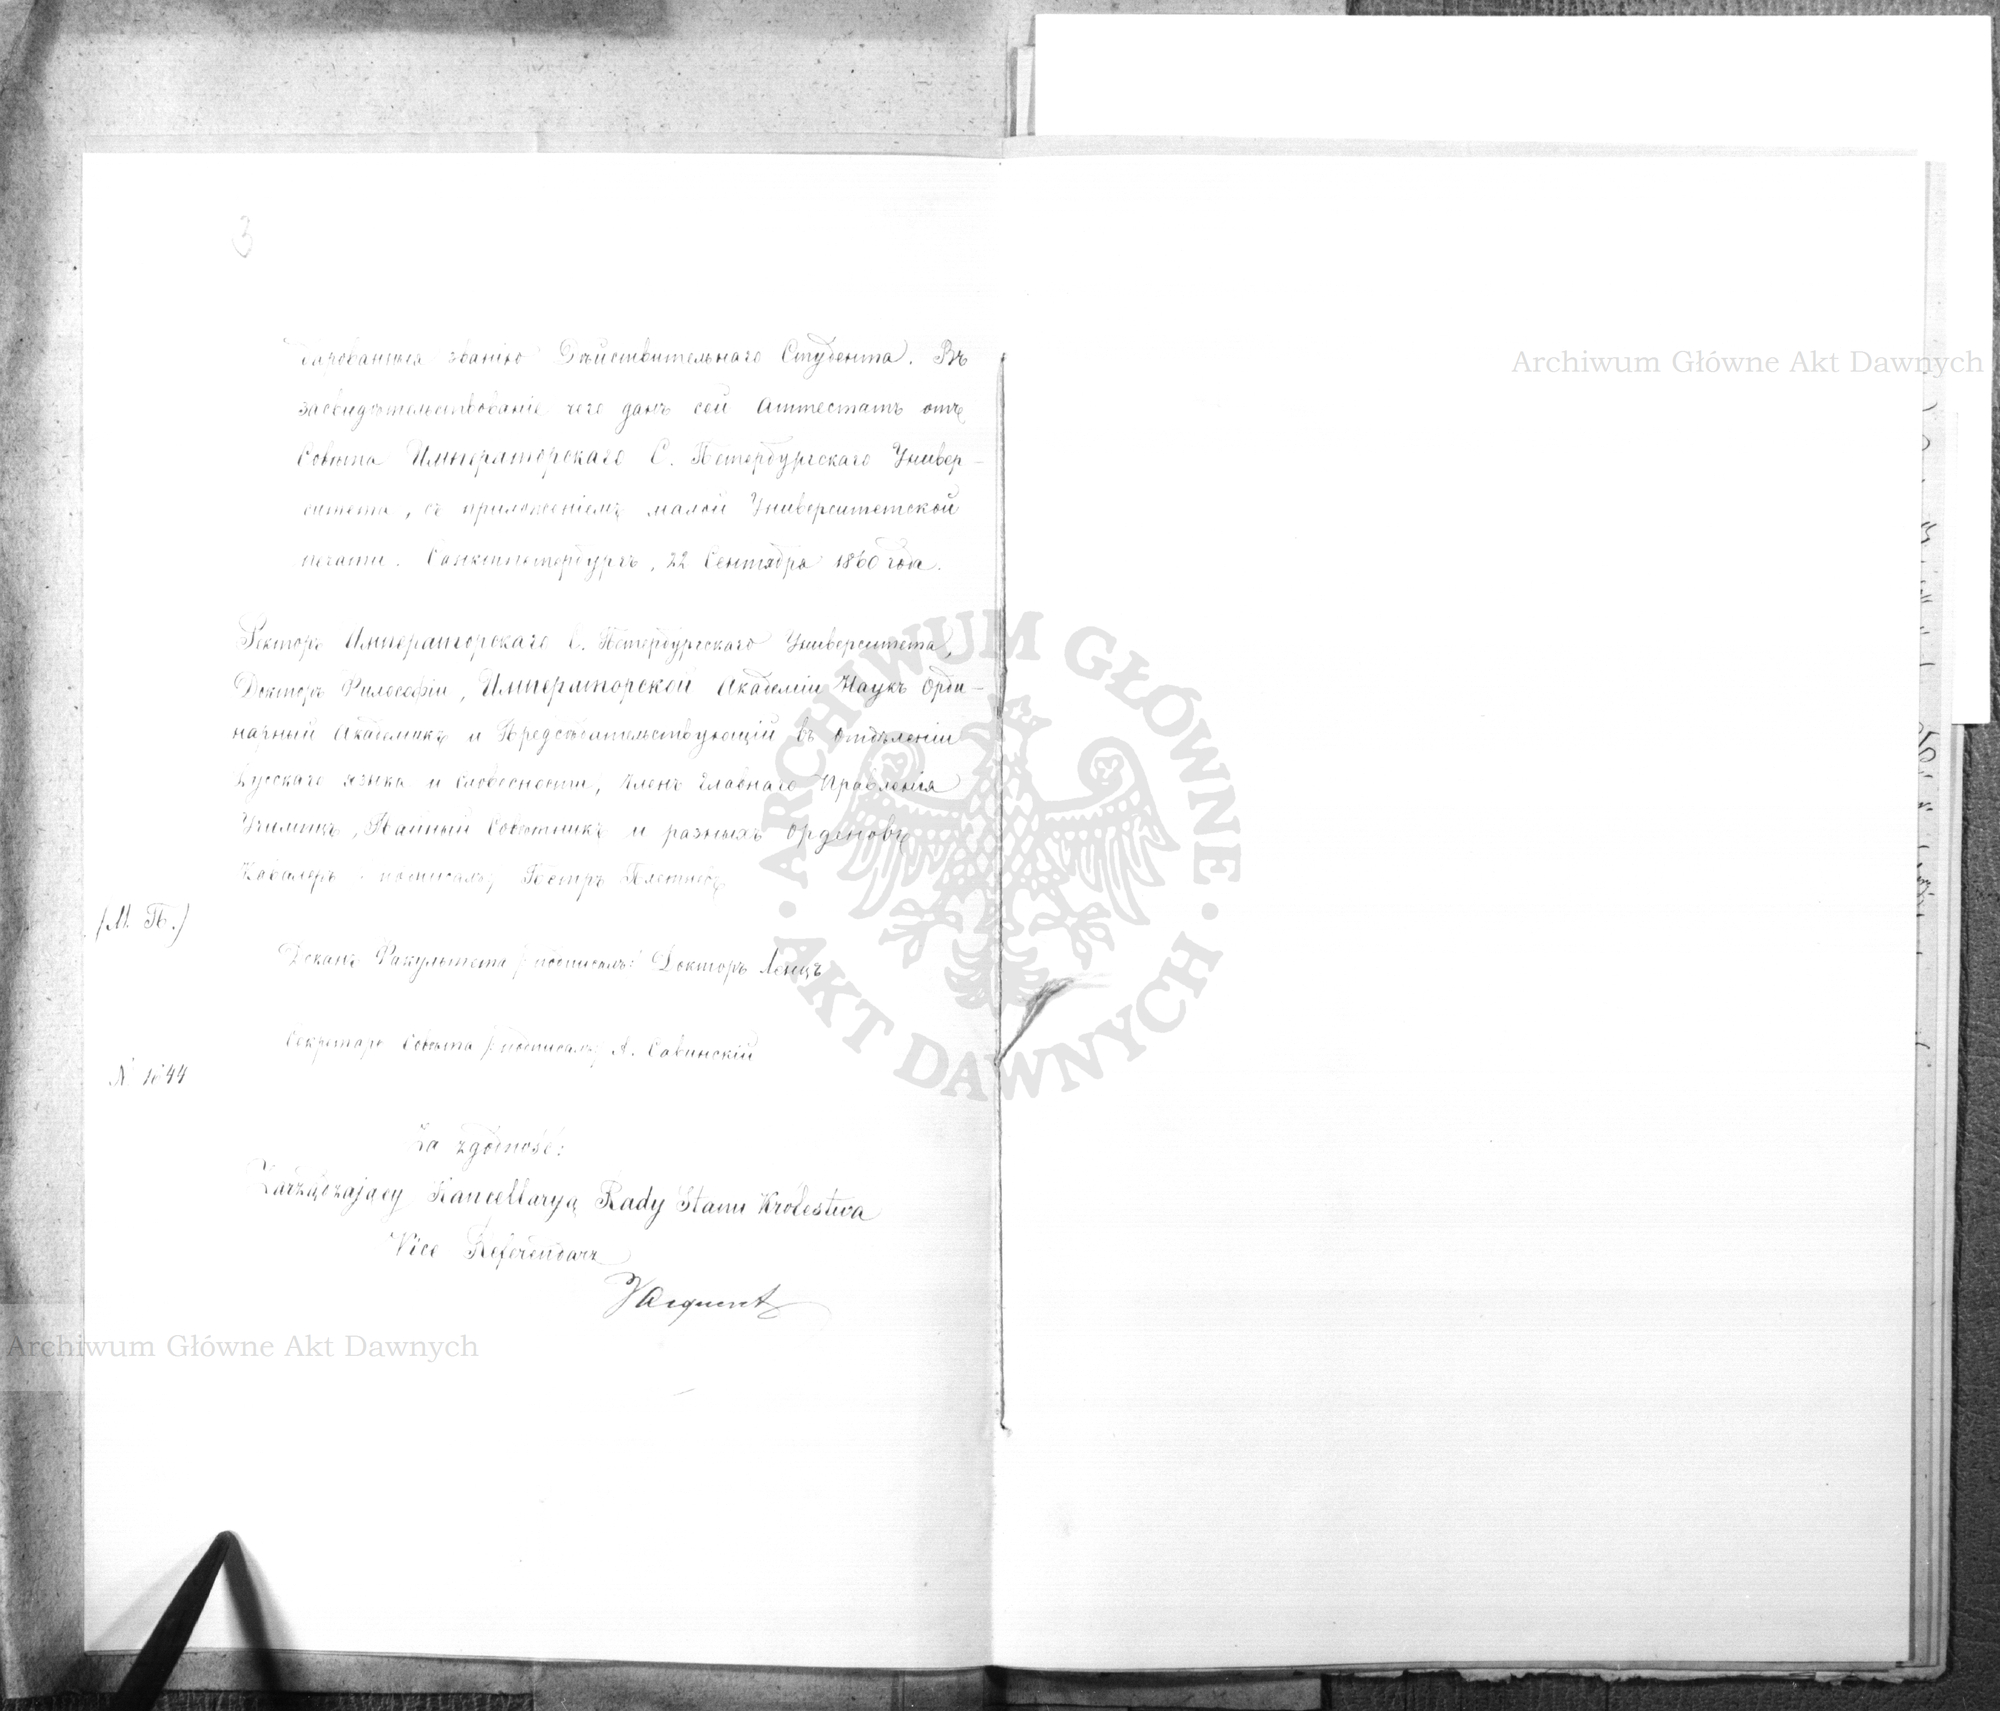 3
дарованныя званію Дѣйствительнаго Студента. Въ
засвидѣтельствованіе чего данъ сей Аттестатъ отъ
Совѣта Императорскаго С. Петербургскаго Универ-
ситета, съ приложеніемъ малой Университетской
печати. Санктпетербургъ, 22 Сентября 1860 года.
Ректоръ Императорскаго С. Петербургскаго Университета,
Докторъ Философіи, Императорской Академіи Наукъ Орди-
нарный Академикъ и Предсѣдательствующій въ Отдѣленіи
Русскаго языка и словесности, Членъ Главнаго Правленія
Училищъ, Тайный Совѣтникъ и разныхъ орденовъ
Кавалеръ подписалъ: Петръ Плетневъ
/М. П./
Деканъ Факультета /: подписалъ: Докторъ Ленцъ
Секретарь Совѣта /: подписалъ: А. Савинскій
N. 1644
Za zgodność:
Zarządzający Kancellaryą Rady Stanu Królestwa
Vice Referendarz
Archiwum Główne Akt Dawnych
Archiwum Główne Akt Dawnych
ARCHIWUM GŁÓWNE AKT DAWNYCH